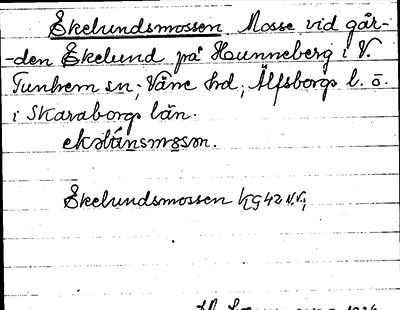 Ekelundsmossen Mosse vid går-
-den Ekelund på Hunneberg i V.
Tunhem sn; Väne hd, Älfsborgs l. o.
i Skaraborgs län.
Ekelundsmossen kg 42 N.V.;